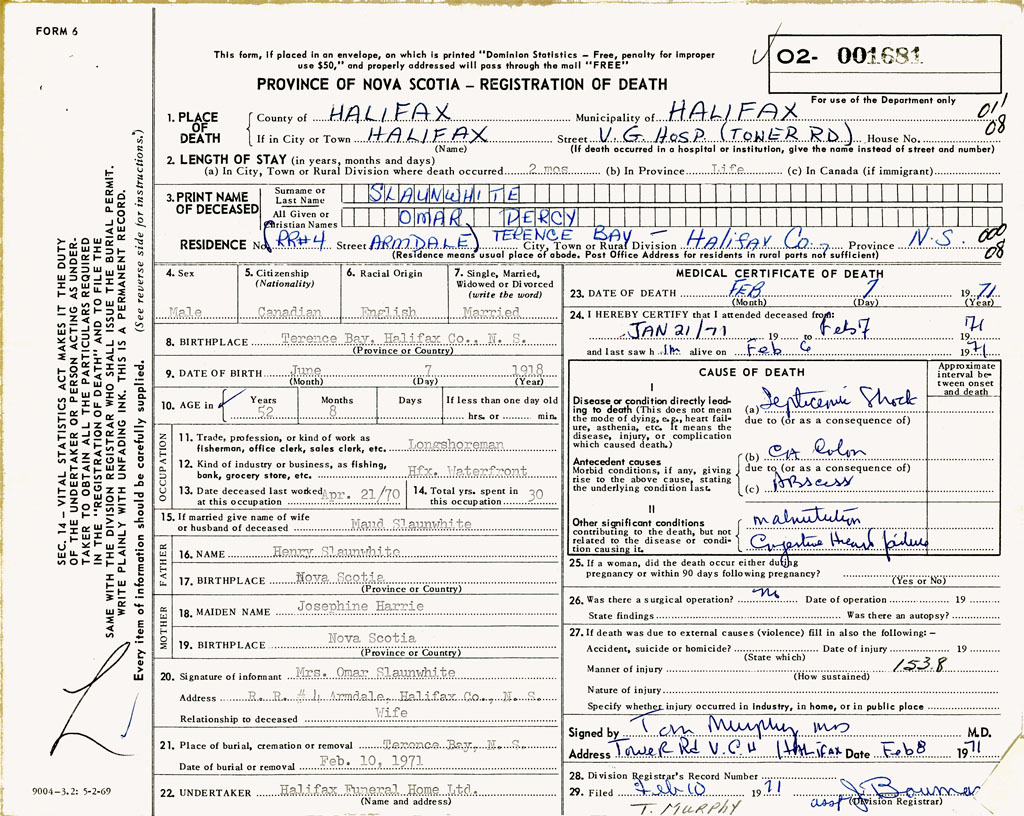 FORM 6
This form, if placed in an envelope, on which is printed "Dominion Statistics – Free, penalty for improper
use $50," and properly addressed will pass through the mail "FREE"
PROVINCE OF NOVA SCOTIA – REGISTRATION OF DEATH
02- 001681
For use of the Department only
011
08
1. PLACE OF DEATH
County of HALIFAX Municipality of HALIFAX
If in City or Town HALIFAX Street V.G. HOSP. (TOWER RD) House No.
(Name) (If death occurred in a hospital or institution, give the name instead of street and number)
2. LENGTH OF STAY (in years, months and days)
(a) In City, Town or Rural Division where death occurred 2 mos (b) In Province Life (c) In Canada (if immigrant)
3. PRINT NAME OF DECEASED
Surname or Last Name SLAUNWHITE
All Given or Christian Names OMAR PERCY
RESIDENCE No. (RR#4 Street ARMDALE) TERENCE BAY – City, Town or Rural Division Halifax Co., Province N.S. 000
08
(Residence means usual place of abode. Post Office Address for residents in rural parts not sufficient)
4. Sex
Male
5. Citizenship
(Nationality)
Canadian
6. Racial Origin
English
7. Single, Married,
Widowed or Divorced
(write the word)
Married
8. BIRTHPLACE Terence Bay, Halifax Co., N. S.
(Province or Country)
9. DATE OF BIRTH June 7 1918
(Month) (Day) (Year)
10. AGE in Years Months Days If less than one day old
52 8 hrs. or min.
OCCUPATION
11. Trade, profession, or kind of work as
fisherman, office clerk, sales clerk, etc. Longshoreman
12. Kind of industry or business, as fishing,
bank, grocery store, etc. Hfx. Waterfront
13. Date deceased last worked
at this occupation Apr. 21/70
14. Total yrs. spent in
this occupation 30
15. If married give name of wife
or husband of deceased Maud Slaunwhite
FATHER
16. NAME Henry Slaunwhite
17. BIRTHPLACE Nova Scotia
(Province or Country)
MOTHER
18. MAIDEN NAME Josephine Harrie
19. BIRTHPLACE Nova Scotia
(Province or Country)
20. Signature of informant Mrs. Omar Slaunwhite
Address R. R. #4 Armdale, Halifax Co., N. S.
Relationship to deceased Wife
21. Place of burial, cremation or removal Terence Bay, N. S.
Date of burial or removal Feb. 10, 1971
22. UNDERTAKER Halifax Funeral Home Ltd.
(Name and address)
MEDICAL CERTIFICATE OF DEATH
23. DATE OF DEATH FEB 7 1971
(Month) (Day) (Year)
24. I HEREBY CERTIFY that I attended deceased from:
JAN 21/71 19 to Feb 7 1971
and last saw h im alive on Feb 6 1971
CAUSE OF DEATH
Approximate
interval be-
tween onset
and death
I
Disease or condition directly lead-
ing to death (This does not mean
the mode of dying, e.g., heart fail-
ure, asthenia, etc. It means the
disease, injury, or complication
which caused death.)
(a) Septicemic Shock
due to (or as a consequence of)
Antecedent causes
Morbid conditions, if any, giving
rise to the above cause, stating
the underlying condition last.
(b) CA Colon
due to (or as a consequence of)
(c) Abscess
II
Other significant conditions
contributing to the death, but not
related to the disease or condi-
tion causing it.
malnutrition
Congestive Heart failure
25. If a woman, did the death occur either during
pregnancy or within 90 days following pregnancy?
(Yes or No)
26. Was there a surgical operation? No Date of operation 19
State findings Was there an autopsy?
27. If death was due to external causes (violence) fill in also the following: –
Accident, suicide or homicide? Date of injury 19
(State which)
Manner of injury 153.8
(How sustained)
Nature of injury
Specify whether injury occurred in industry, in home, or in public place
Signed by Tom Murphy MD M.D.
Address Tower Rd V.G.H Halifax Date Feb 8 1971
28. Division Registrar's Record Number
29. Filed Feb 10 1971
(Division Registrar)
T. MURPHY
SEC. 14 – VITAL STATISTICS ACT MAKES IT THE DUTY
OF THE UNDERTAKER OR PERSON ACTING AS UNDER-
TAKER TO OBTAIN ALL THE PARTICULARS REQUIRED
IN THE "REGISTRATION OF DEATH" AND TO FILE THE
SAME WITH THE DIVISION REGISTRAR WHO SHALL ISSUE THE BURIAL PERMIT.
WRITE PLAINLY WITH UNFADING INK. THIS IS A PERMANENT RECORD.
Every item of information should be carefully supplied. (See reverse side for instructions.)
9004-3.2: 5-2-69